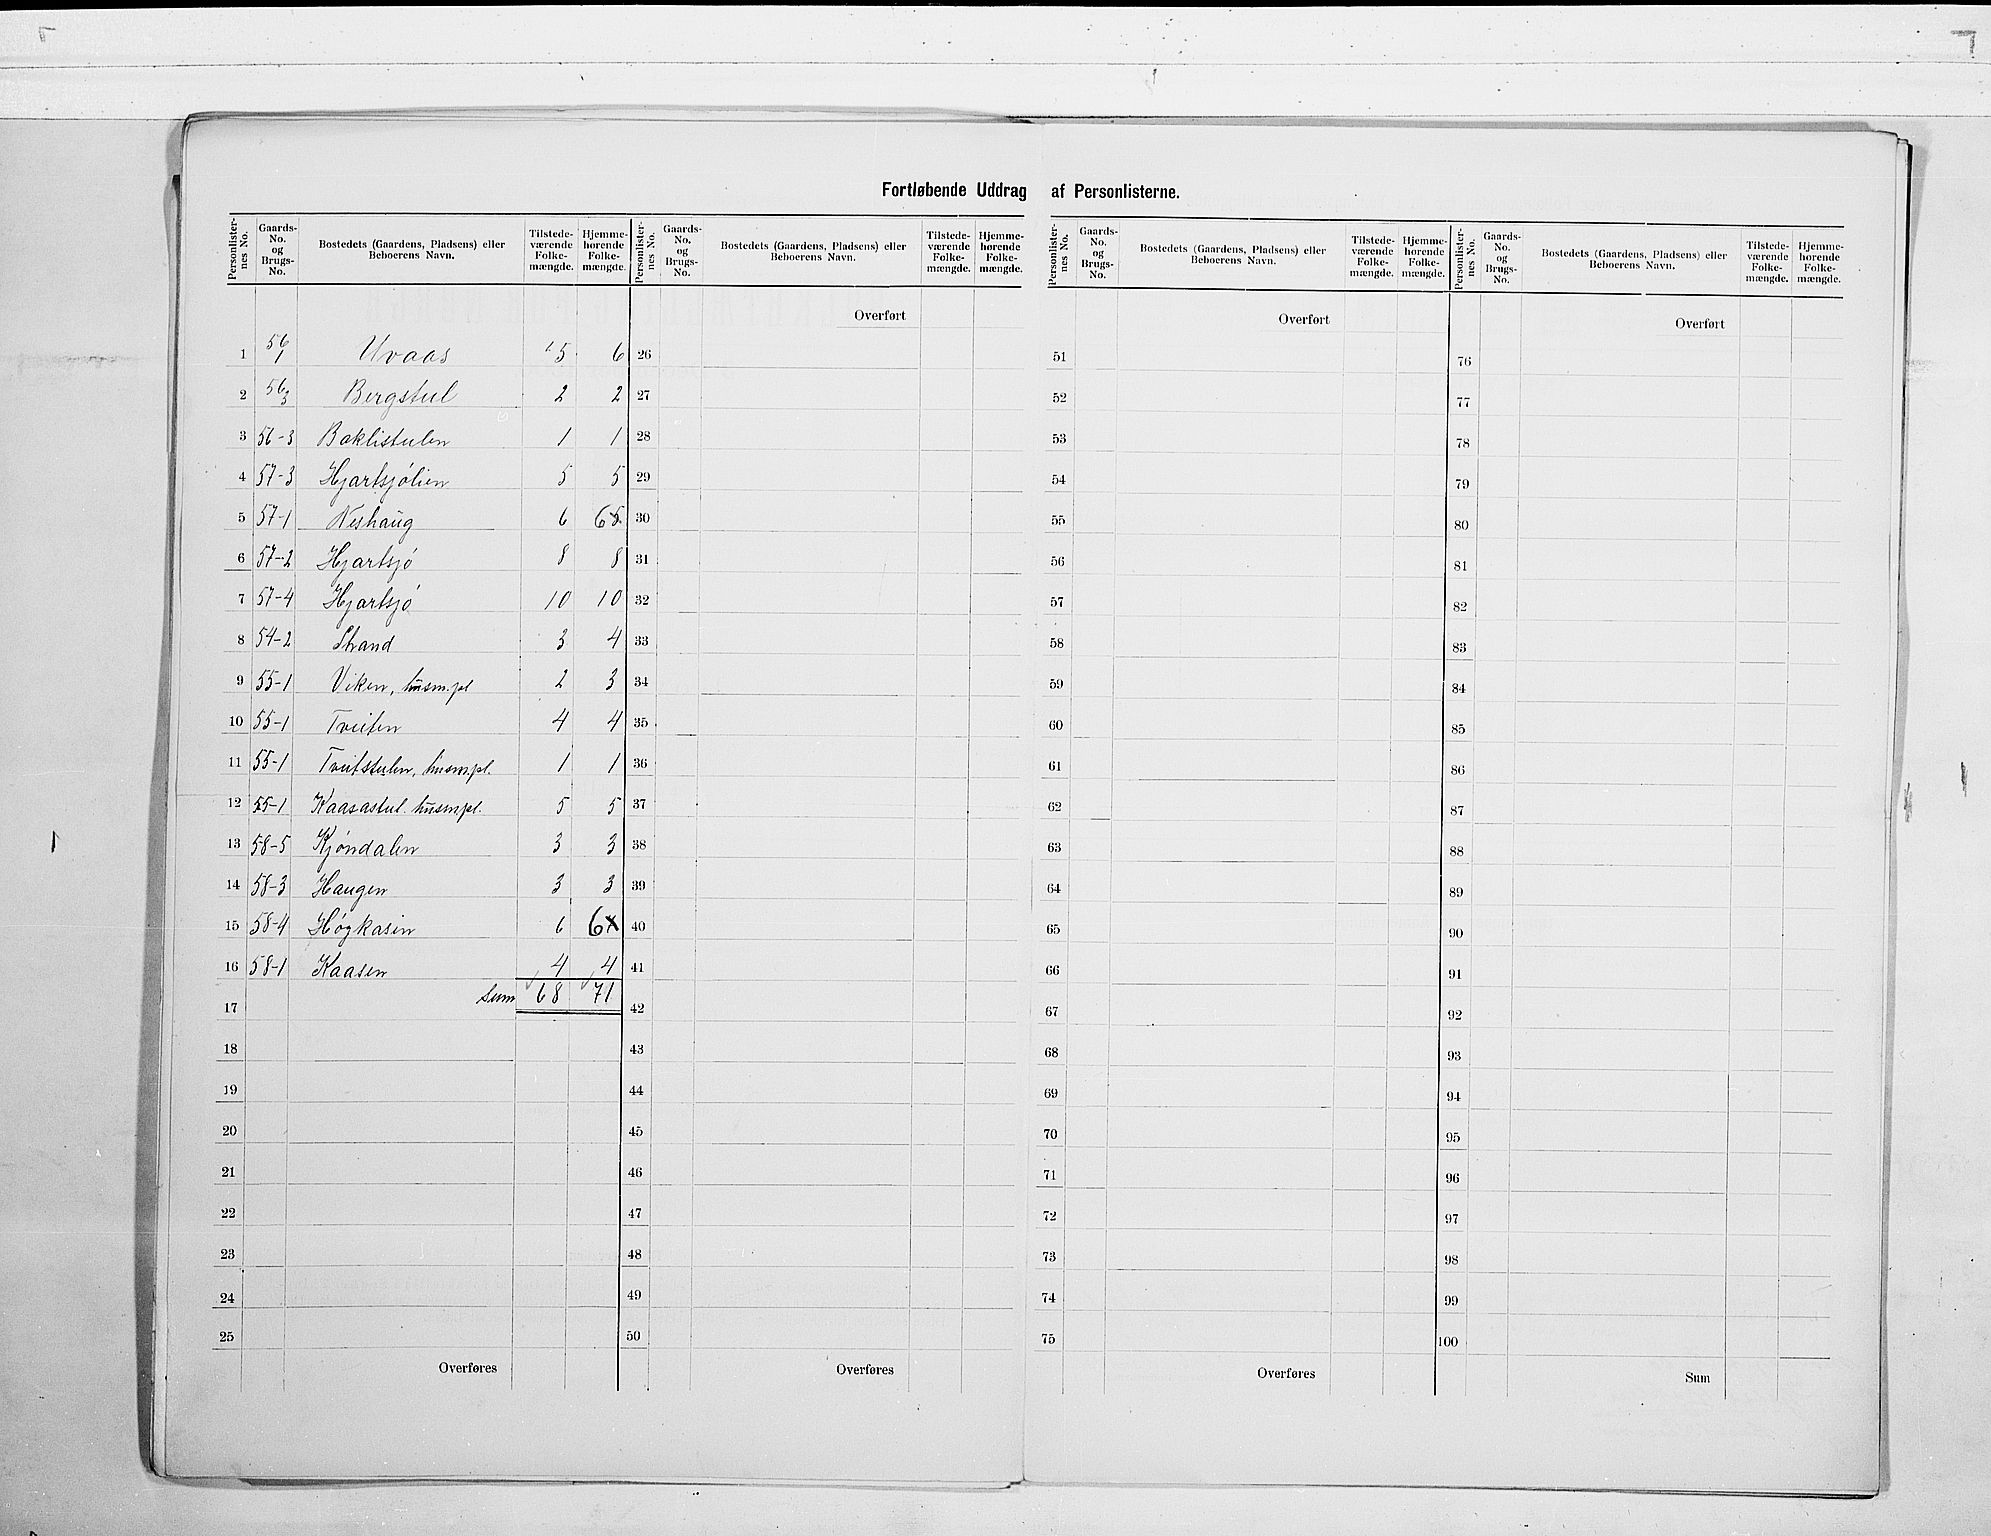 Fortløbende Uddrag af Personlisterne.
Personlisternes No. | Gaards-No. og Brugs-No. | Bostedets (Gaardens, Pladsens) eller Beboerens Navn. | Tilstedeværende Folkemængde. | Hjemmehørende Folkemængde.
1 56/1 Uvaas 5 6
2 56/3 Bergstul 2 2
3 56-3 Baklistulen 1 1
4 57-3 Hjartsjölien 5 5
5 57-1 Neshaug 6 6
6 57-2 Hjartsjö 8 8
7 57-4 Hjartsjö 10 10
8 54-2 Strand 3 4
9 55-1 Viken, husm.pl 2 3
10 55-1 Tveiten 4 4
11 55-1 Tveitstulen, husm.pl. 1 1
12 55-1 Kaasastul. husm.pl. 5 5
13 58-5 Kjöndalen 3 3
14 58-3 Haugen 3 3
15 58-4 Høgkasin 6 6
16 58-1 Kaasen 4 4
17 Sum 68 71
18
19
20
21
22
23
24
25
Overføres
Personlisternes No. | Gaards-No. og Brugs-No. | Bostedets (Gaardens, Pladsens) eller Beboerens Navn. | Tilstedeværende Folkemængde. | Hjemmehørende Folkemængde.
Overført
26
27
28
29
30
31
32
33
34
35
36
37
38
39
40
41
42
43
44
45
46
47
48
49
50
Overføres
Personlisternes No. | Gaards-No. og Brugs-No. | Bostedets (Gaardens, Pladsens) eller Beboerens Navn. | Tilstedeværende Folkemængde. | Hjemmehørende Folkemængde.
Overført
51
52
53
54
55
56
57
58
59
60
61
62
63
64
65
66
67
68
69
70
71
72
73
74
75
Overføres
Personlisternes No. | Gaards-No. og Brugs-No. | Bostedets (Gaardens, Pladsens) eller Beboerens Navn. | Tilstedeværende Folkemængde. | Hjemmehørende Folkemængde.
Overført
76
77
78
79
80
81
82
83
84
85
86
87
88
89
90
91
92
93
94
95
96
97
98
99
100
Sum